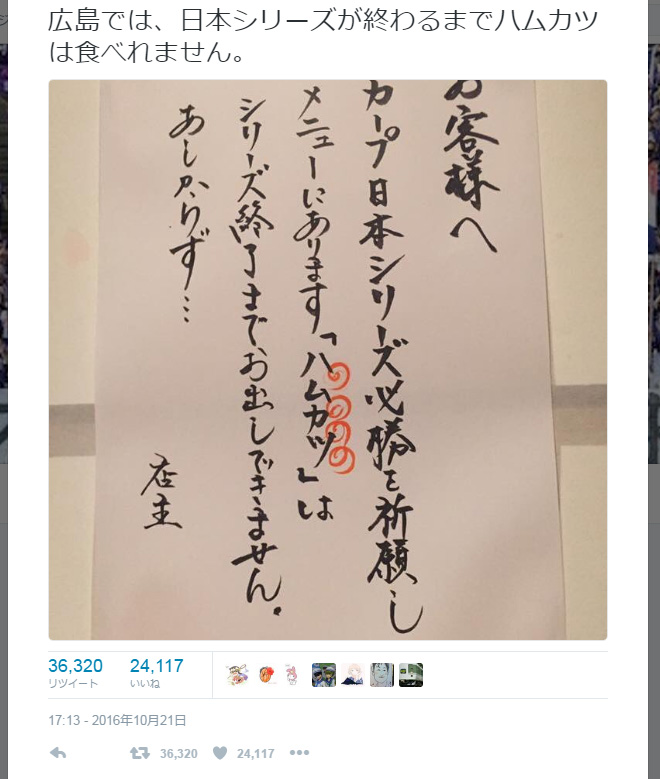 広島では、日本シリーズが終わるまでハムカツ
は食べれません。
お客様へ
カープ日本シリーズ必勝を祈願し
メニューにあります「ハムカツ」は
シリーズ終了までお出しできません。
あしからず…
店主
36,320
24,117
リツイート
いいね
17:13 - 2016年10月21日
36,320
24,117